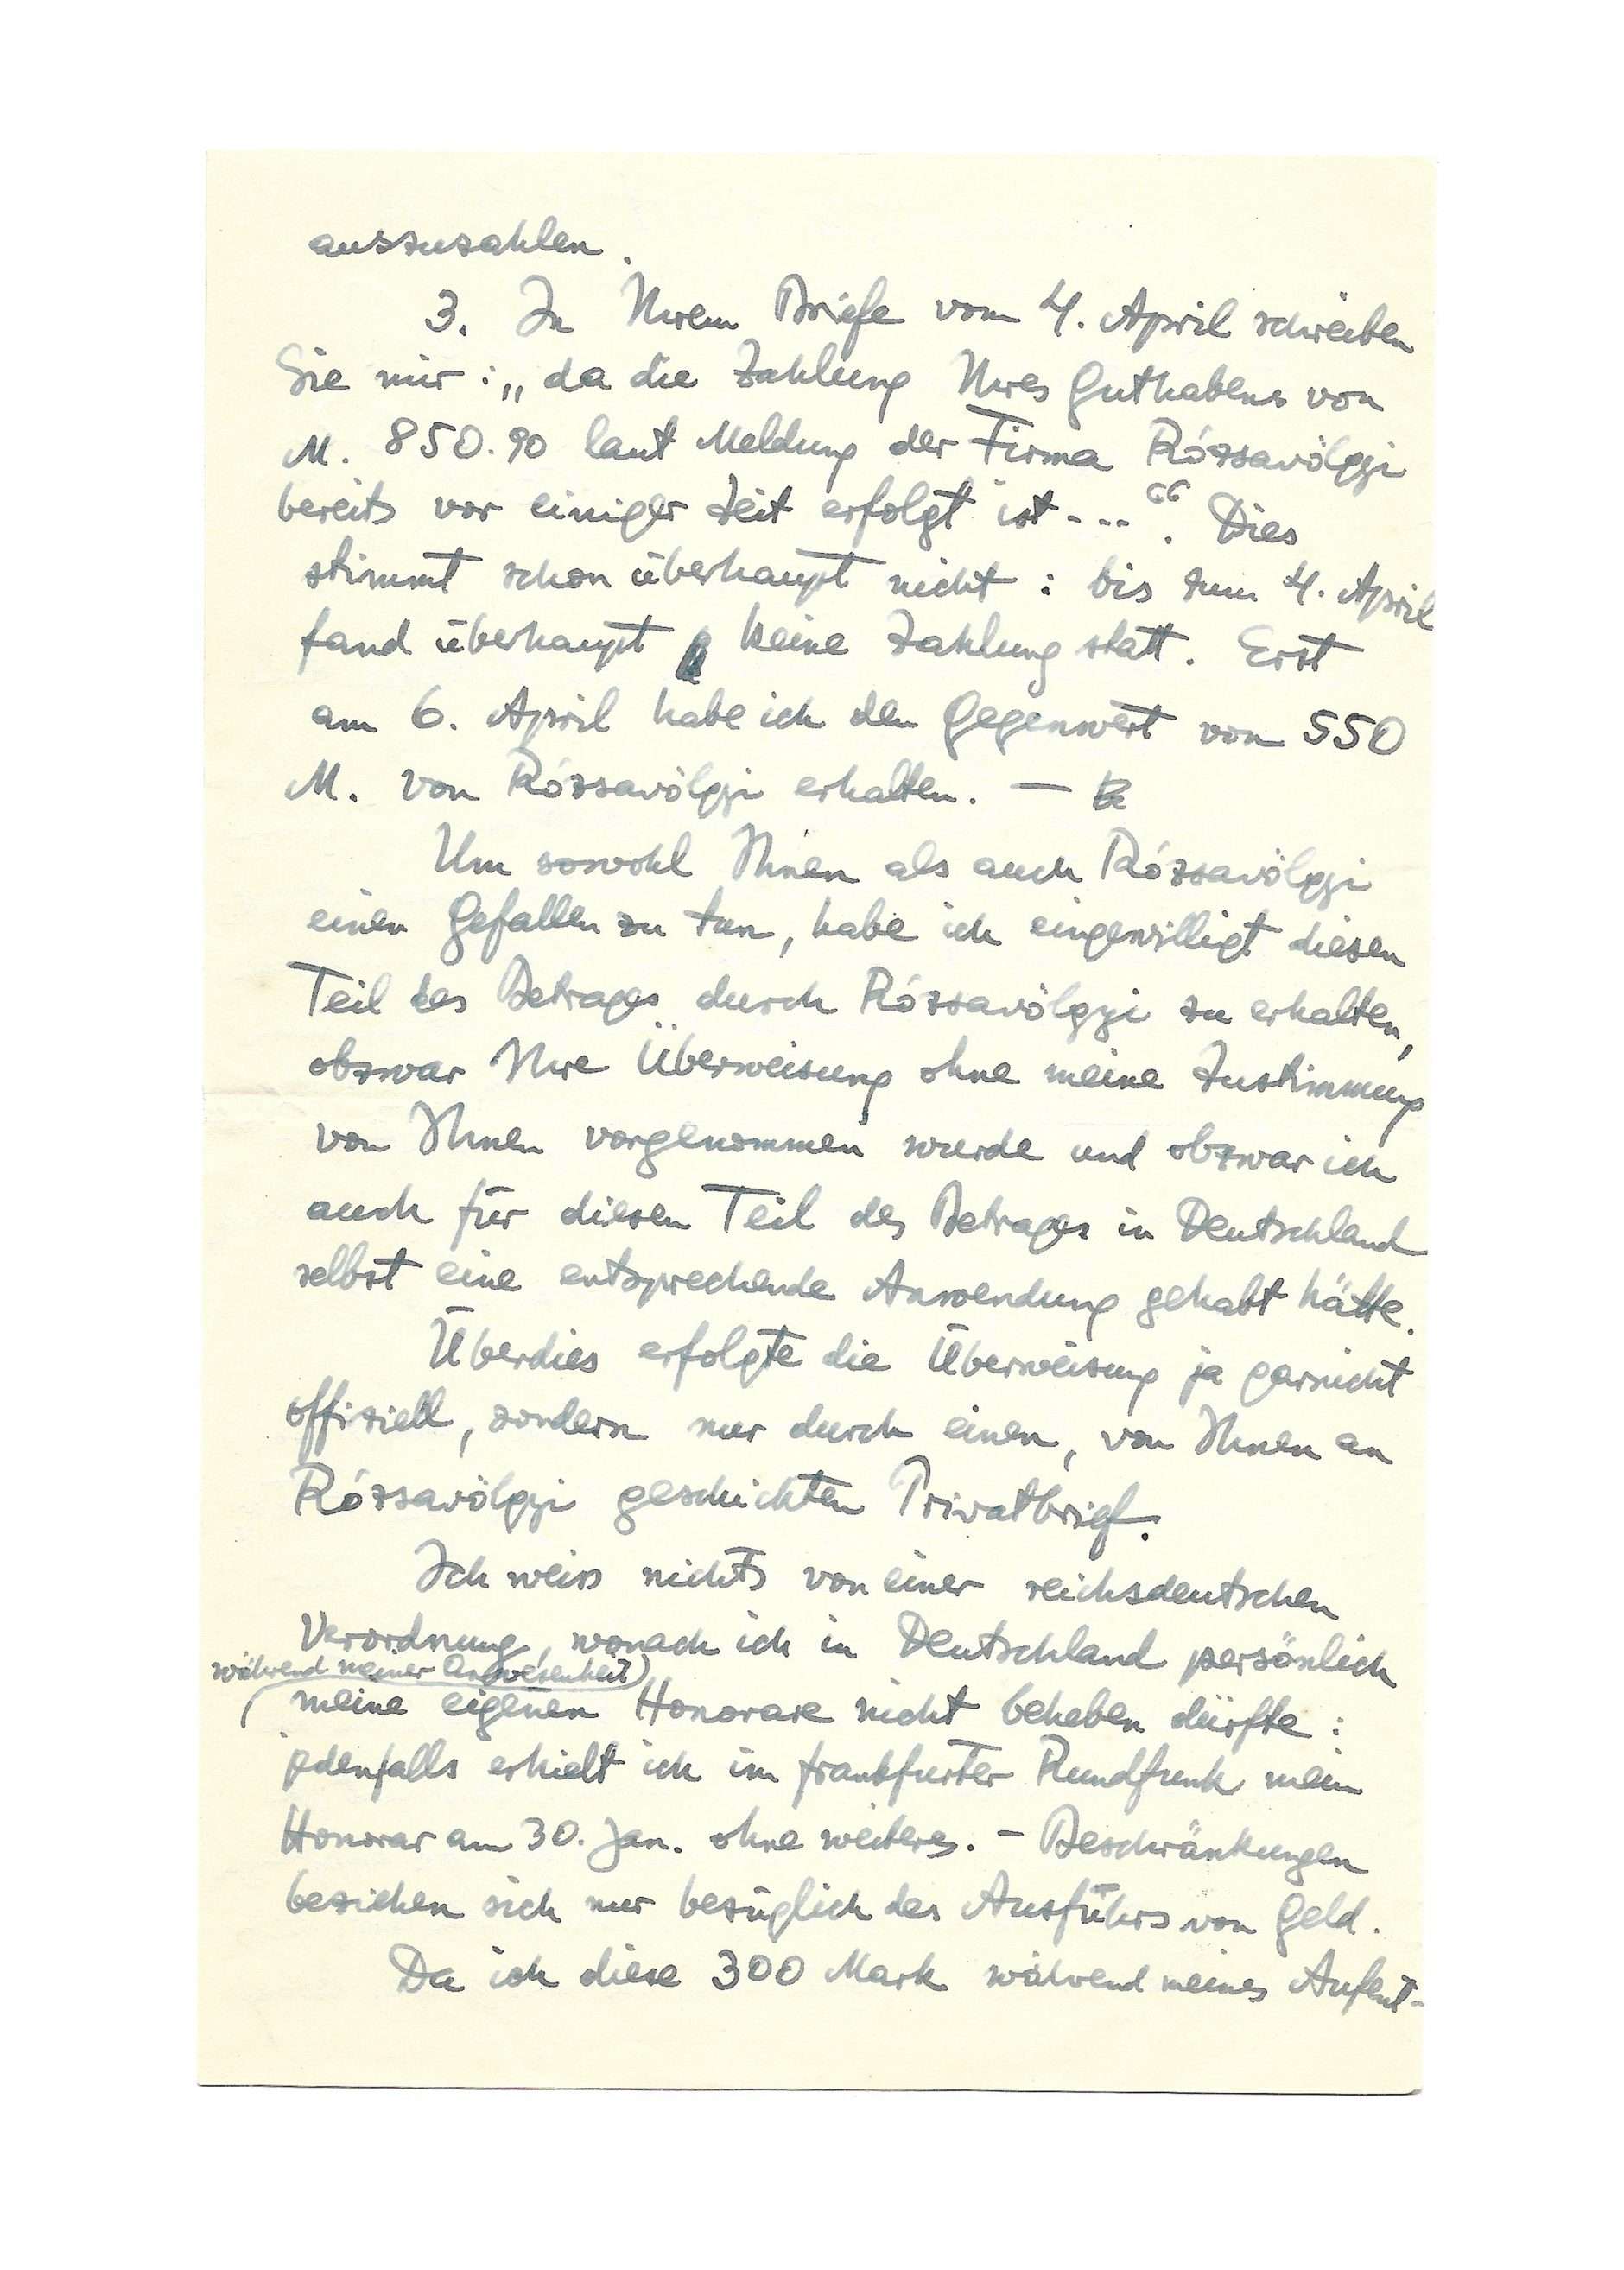 auszuzahlen.
3. In Ihrem Briefe vom 4. April schreiben
Sie mir: „da die Zahlung Ihres Guthabens von
M. 850.90 laut Meldung der Firma Rózsavölgyi
bereits vor einiger Zeit erfolgt ist---“. Dies
stimmt schon überhaupt nicht: bis zum 4. April
fand überhaupt keine Zahlung statt. Erst
am 6. April habe ich den Gegenwert von 550
M. von Rózsavölgyi erhalten. —
Um sowohl Ihnen als auch Rózsavölgyi
einen Gefallen zu tun, habe ich eingewilligt diesen
Teil des Betrages durch Rózsavölgyi zu erhalten,
obzwar Ihre Überweisung ohne meine Zustimmung
von Ihnen vorgenommen wurde und obzwar ich
auch für diesen Teil des Betrages in Deutschland
selbst eine entsprechende Anwendung gehabt hätte.
Überdies erfolgte die Überweisung ja garnicht
offiziell, sondern nur durch einen, von Ihnen an
Rózsavölgyi geschickten Privatbrief.
Ich weiss nichts von einer reichsdeutschen
Verordnung, wonach ich in Deutschland persönlich
während meiner Anwesenheit)
(meine eigenen Honorare nicht beheben dürfte:
jedenfalls erhielt ich im frankfurter Rundfunk mein
Honorar am 30. Jan. ohne weiteres. – Beschränkungen
beziehen sich nur bezüglich des Ausführs von Geld.
Da ich diese 300 Mark während meines Aufent-